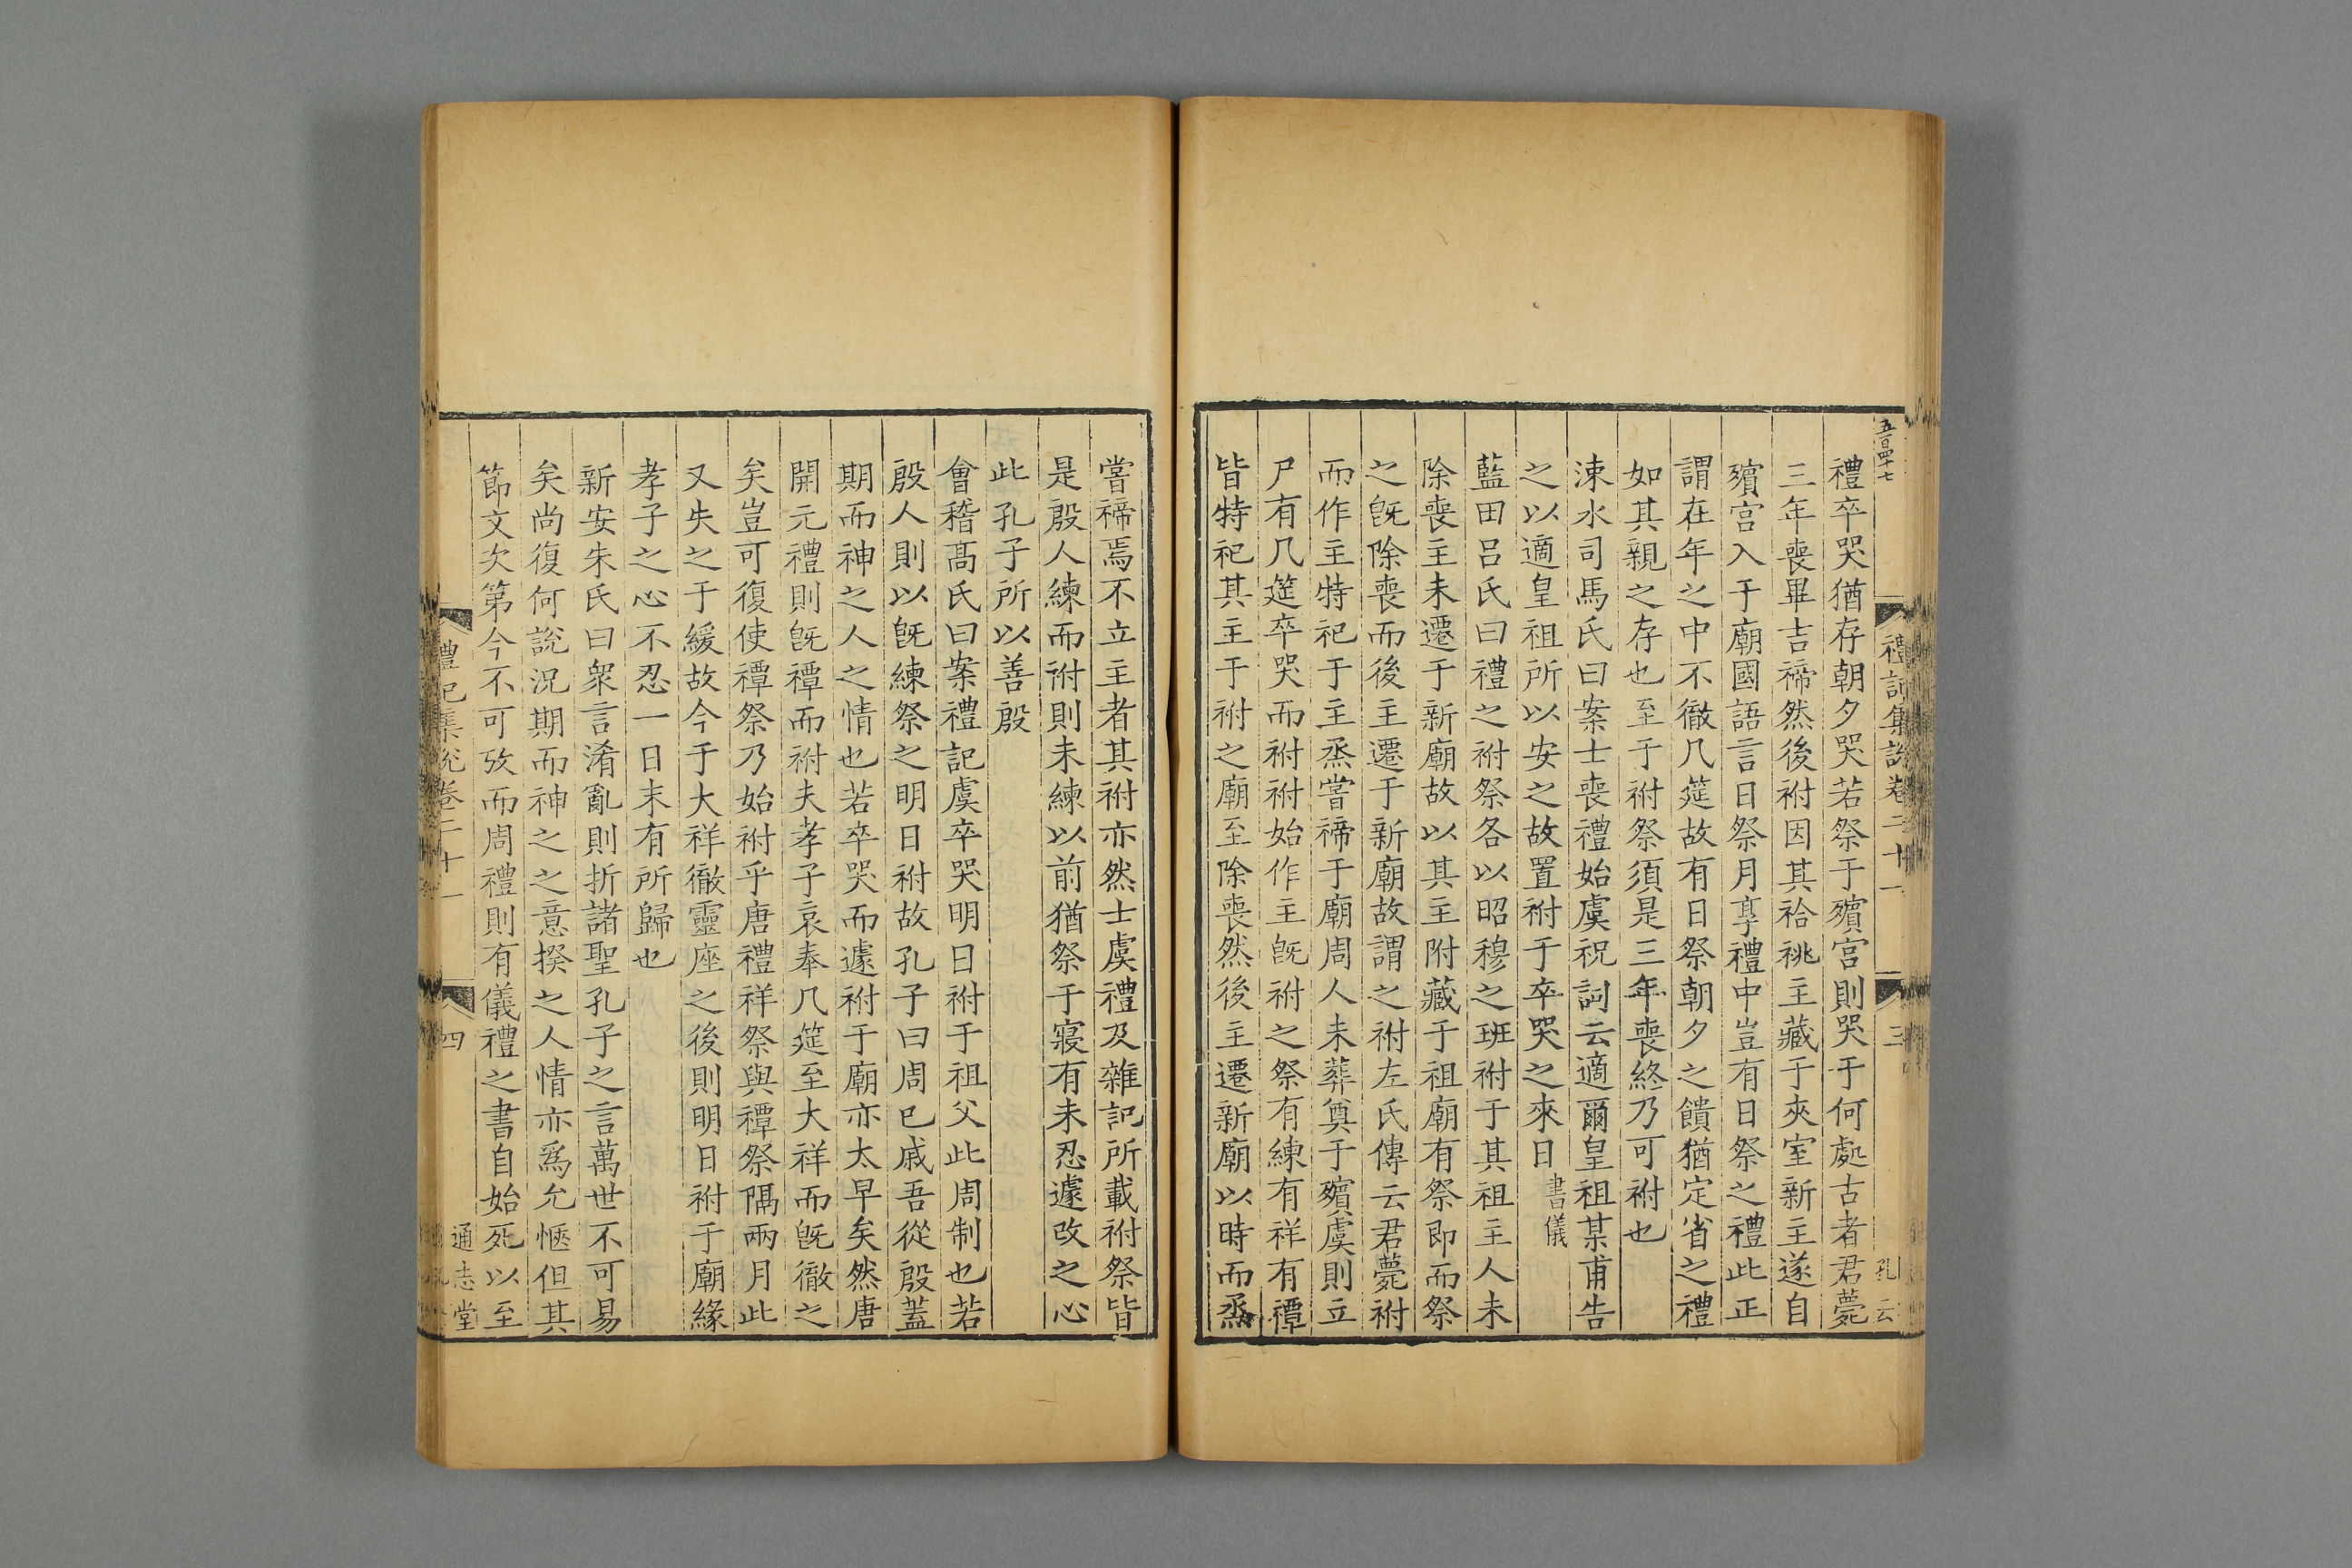 五百四十七
禮記集說卷二十一
三
孔云
禮卒哭猶存朝夕哭若祭于殯宮則哭于何處古者君薨
三年喪畢吉禘然後祔因其祫祧主藏于夾室新主遂自
殯宮入于廟國語言日祭月享禮中豈有日祭之禮此正
謂在年之中不徹几筵故有日祭朝夕之饋猶定省之禮
如其親之存也至于祔祭須是三年喪終乃可祔也
涑水司馬氏曰案士喪禮始虞祝詞云適爾皇祖某甫告
之以適皇祖所以安之故置祔于卒哭之來日書儀
藍田呂氏曰禮之祔祭各以昭穆之班祔于其祖主人未
除喪主未遷于新廟故以其主附藏于祖廟有祭即而祭
之旣除喪而後主遷于新廟故謂之祔左氏傳云君薨祔
而作主特祀于主烝嘗禘于廟周人未葬奠于殯虞則立
尸有几筵卒哭而祔祔始作主旣祔之祭有練有祥有禫
皆特祀其主于祔之廟至除喪然後主遷新廟以時而烝
嘗禘焉不立主者其祔亦然士虞禮及雜記所載祔祭皆
是殷人練而祔則未練以前猶祭于寢有未忍遽改之心
此孔子所以善殷
會稽高氏曰案禮記虞卒哭明日祔于祖父此周制也若
殷人則以旣練祭之明日祔故孔子曰周已戚吾從殷蓋
期而神之人之情也若卒哭而遽祔于廟亦太早矣然唐
開元禮則旣禫而祔夫孝子哀奉几筵至大祥而旣徹之
矣豈可復使禫祭乃始祔乎唐禮祥祭與禫祭隔兩月此
又失之于緩故今于大祥徹靈座之後則明日祔于廟緣
孝子之心不忍一日末有所歸也
新安朱氏曰衆言淆亂則折諸聖孔子之言萬世不可易
矣尚復何說況期而神之之意揆之人情亦爲允愜但其
節文次第今不可攷而周禮則有儀禮之書自始死以至
禮記集說卷二十一
四
通志堂